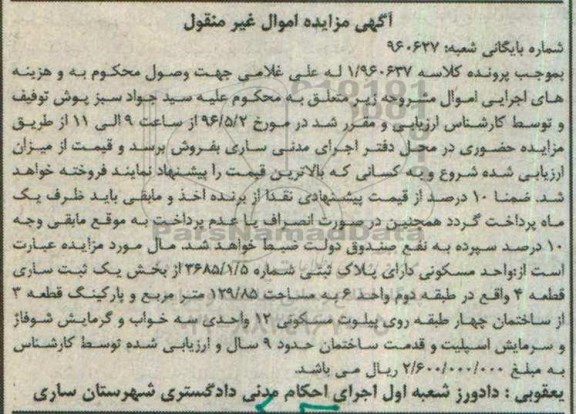 آگهی مزایده اموال غیر منقول
شماره بایگانی شعبه: ۹۶۰۶۲۷
بموجب پرونده کلاسه ۱/۹۶۰۶۳۷ له علی غلامی جهت وصول محکوم به و هزینه
های اجرایی اموال مشروحه زیر متعلق به محکوم علیه سید جواد سبز پوش توقیف
و توسط کارشناس ارزیابی و مقرر شد در مورخ ۹۶/۵/۲ از ساعت ۹ الی ۱۱ از طریق
مزایده حضوری در محل دفتر اجرای مدنی ساری بفروش برسد و قیمت از میزان
ارزیابی شده شروع و به کسانی که بالاترین قیمت را پیشنهاد نمایند فروخته خواهد
شد. ضمنا ۱۰ درصد از قیمت پیشنهادی نقدا از برنده اخذ و مابقی باید ظرف یک
ماه پرداخت گردد همچنین در صورت انصراف یا عدم پرداخت به موقع مابقی وجه
۱۰ درصد سپرده به نفع صندوق دولت ضبط خواهد شد. مال مورد مزایده عبارت
است از:واحد مسکونی دارای پلاک ثبتی شماره ۳۶۸۵/۱/۵ از بخش یک ثبت ساری
قطعه ۴ واقع در طبقه دوم واحد ۶ به مساحت ۱۲۹/۸۵ متر مربع و پارکینگ قطعه ۳
از ساختمان چهار طبقه روی پیلوت مسکونی ۱۲ واحدی سه خواب و گرمایش شوفاژ
و سرمایش اسپلیت و قدمت ساختمان حدود ۹ سال و ارزیابی شده توسط کارشناس
به مبلغ ۲/۶۰۰/۰۰۰/۰۰۰ ریال می باشد.
یعقوبی : دادورز شعبه اول اجرای احکام مدنی دادگستری شهرستان ساری
ParsNamadData